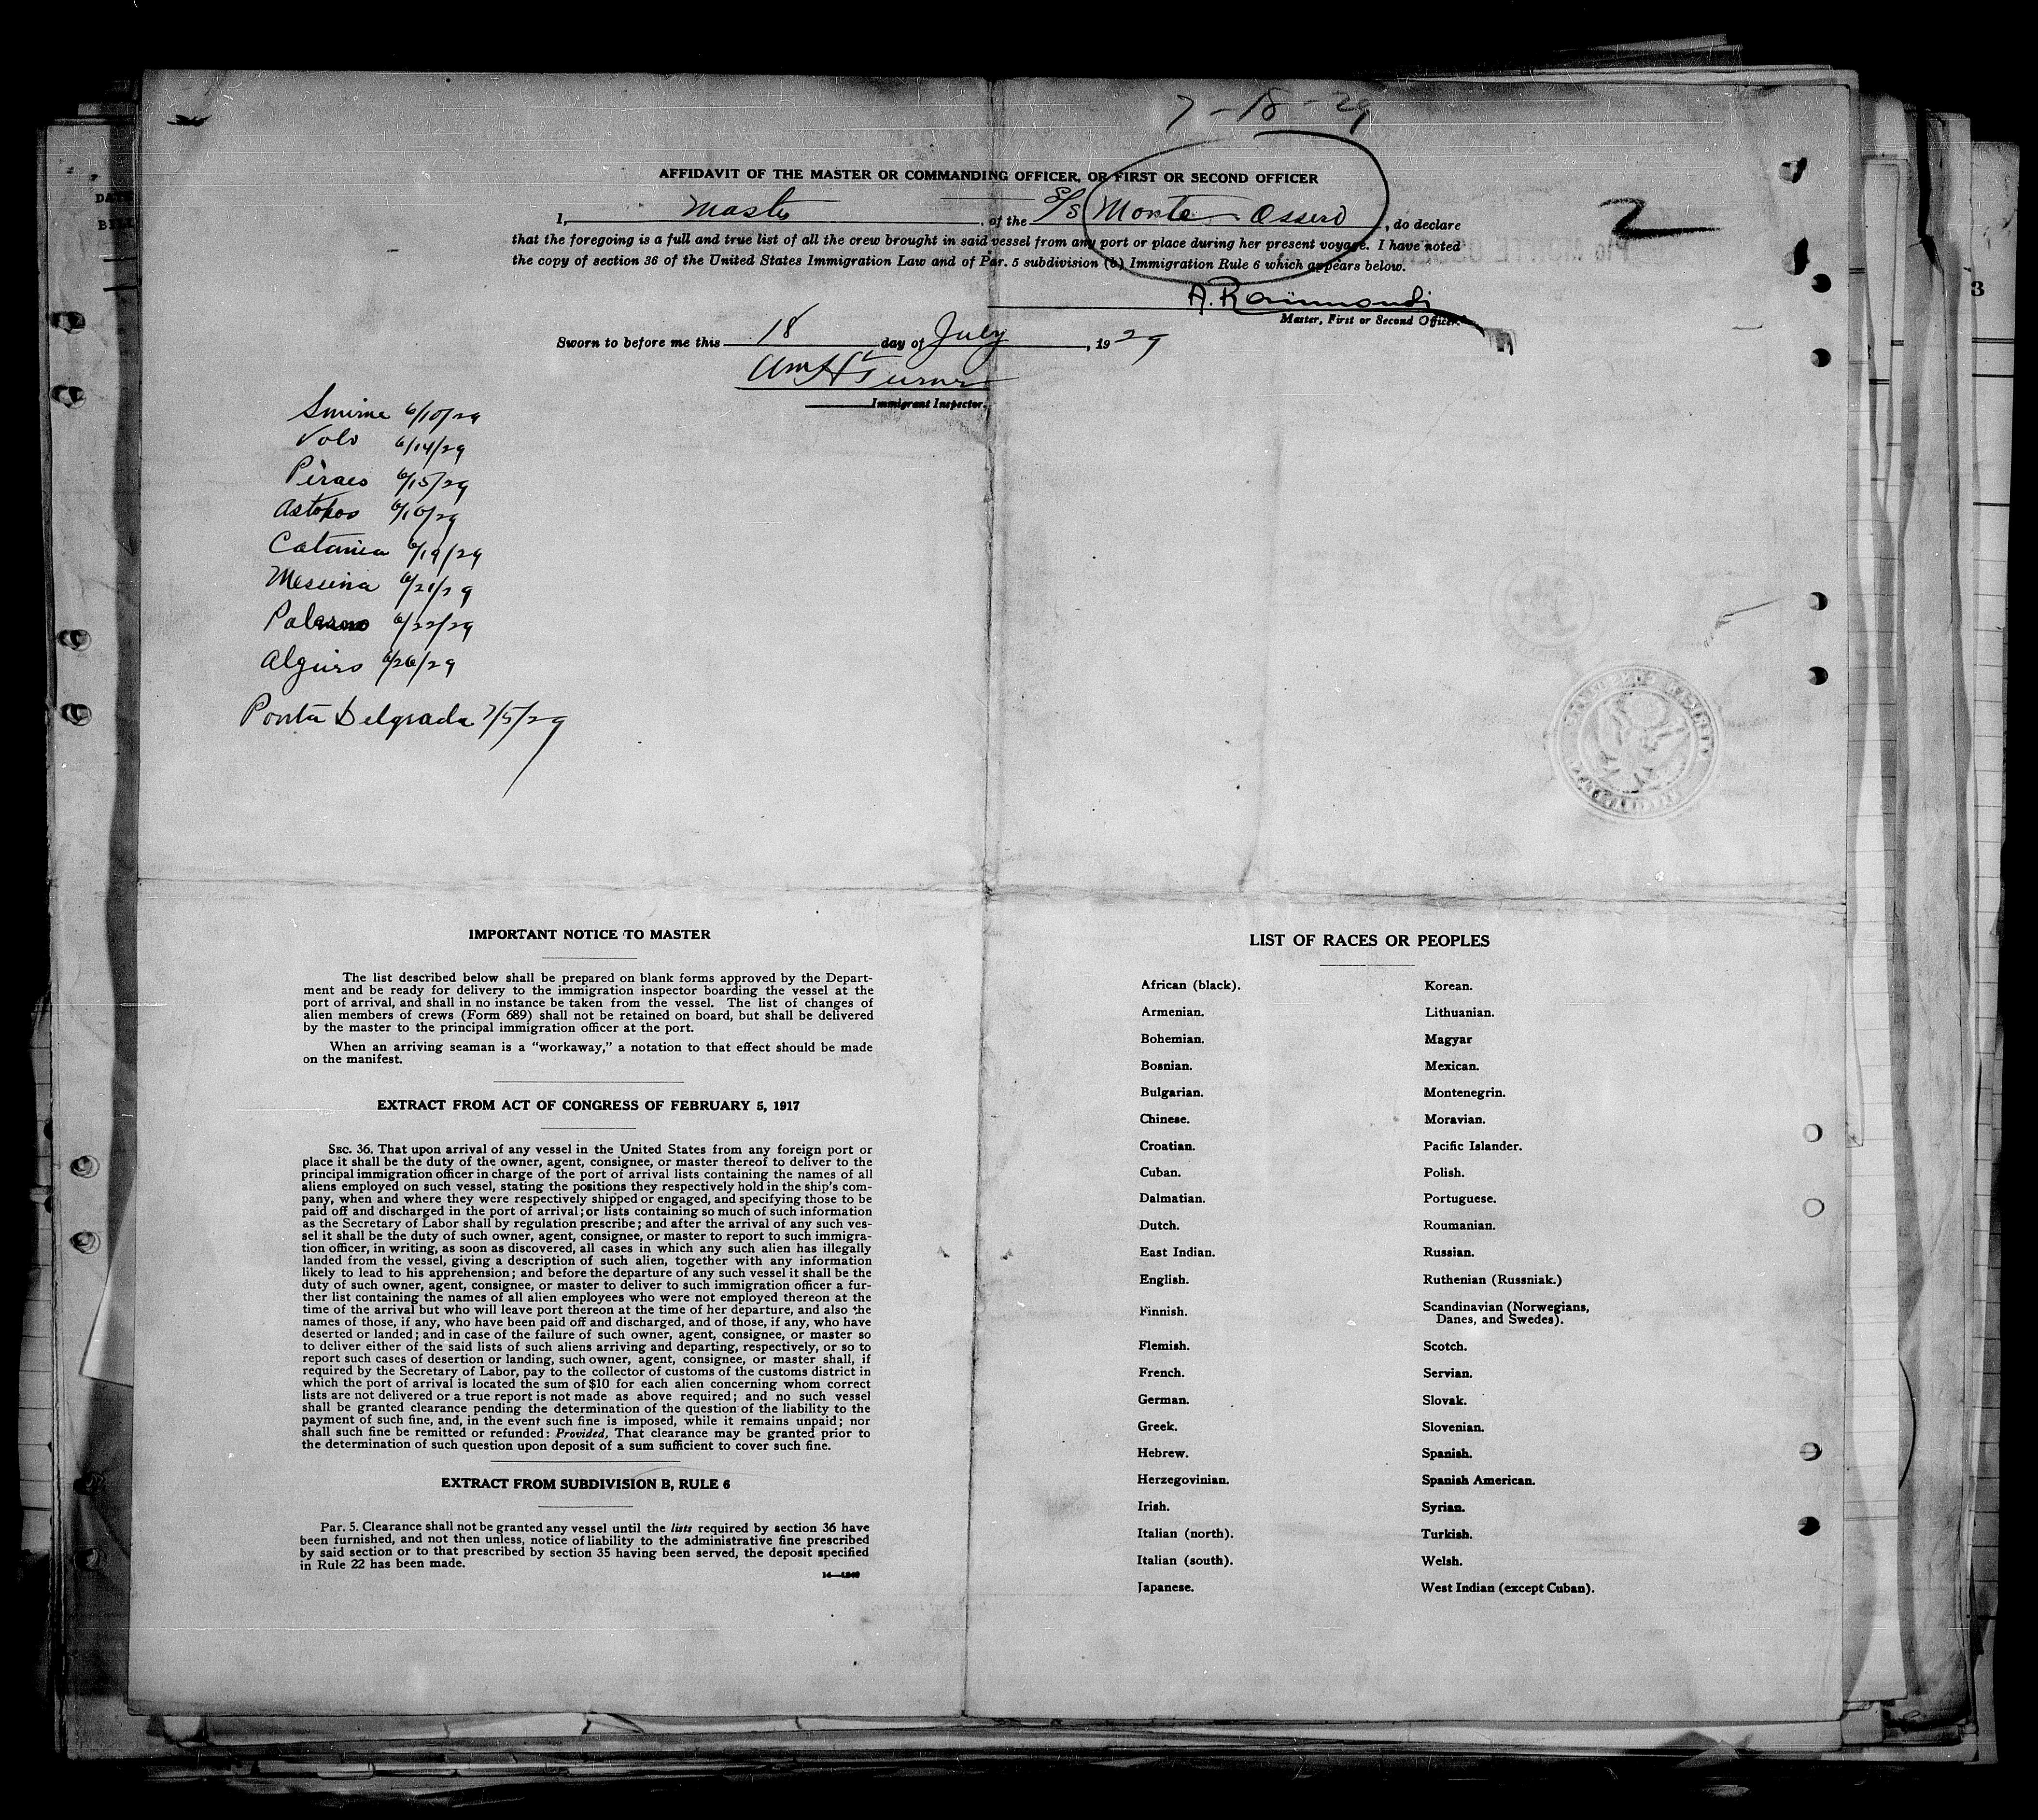 7-18-29
AFFIDAVIT OF THE MASTER OR COMMANDING OFFICER, OR FIRST OR SECOND OFFICER
I, Master, of the S/S Monte Ossero, do declare
that the foregoing is a full and true list of all the crew brought in said vessel from any port or place during her present voyage. I have noted
the copy of section 36 of the United States Immigration Law and of Par. 5 subdivision (b) Immigration Rule 6 which appears below.
2
A. Raimondi
Master, First or Second Officer.
Sworn to before me this 18 day of July, 1929
Wm H Turner
Immigrant Inspector.
Smirne 6/10/29
Volo 6/14/29
Pireo 6/15/29
Astokos 6/16/29
Catania 6/19/29
Messina 6/21/29
Palermo 6/22/29
Algiers 6/26/29
Ponta Delgada 7/5/29
IMPORTANT NOTICE TO MASTER
The list described below shall be prepared on blank forms approved by the Depart-
ment and be ready for delivery to the immigration inspector boarding the vessel at the
port of arrival, and shall in no instance be taken from the vessel. The list of changes of
alien members of crews (Form 689) shall not be retained on board, but shall be delivered
by the master to the principal immigration officer at the port.
When an arriving seaman is a "workaway," a notation to that effect should be made
on the manifest.
EXTRACT FROM ACT OF CONGRESS OF FEBRUARY 5, 1917
SEC. 36. That upon arrival of any vessel in the United States from any foreign port or
place it shall be the duty of the owner, agent, consignee, or master thereof to deliver to the
principal immigration officer in charge of the port of arrival lists containing the names of all
aliens employed on such vessel, stating the positions they respectively hold in the ship's com-
pany, when and where they were respectively shipped or engaged, and specifying those to be
paid off and discharged in the port of arrival; or lists containing so much of such information
as the Secretary of Labor shall by regulation prescribe; and after the arrival of any such ves-
sel it shall be the duty of such owner, agent, consignee, or master to report to such immigra-
tion officer, in writing, as soon as discovered, all cases in which any such alien has illegally
landed from the vessel, giving a description of such alien, together with any information
likely to lead to his apprehension; and before the departure of any such vessel it shall be the
duty of such owner, agent, consignee, or master to deliver to such immigration officer a fur-
ther list containing the names of all alien employees who were not employed thereon at the
time of the arrival but who will leave port thereon at the time of her departure, and also the
names of those, if any, who have been paid off and discharged, and of those, if any, who have
deserted or landed; and in case of the failure of such owner, agent, consignee, or master so
to deliver either of the said lists of such aliens arriving and departing, respectively, or so to
report such cases of desertion or landing, such owner, agent, consignee, or master shall, if
required by the Secretary of Labor, pay to the collector of customs of the customs district in
which the port of arrival is located the sum of $10 for each alien concerning whom correct
lists are not delivered or a true report is not made as above required; and no such vessel
shall be granted clearance pending the determination of the question of the liability to the
payment of such fine, and, in the event such fine is imposed, while it remains unpaid; nor
shall such fine be remitted or refunded: Provided, That clearance may be granted prior to
the determination of such question upon deposit of a sum sufficient to cover such fine.
EXTRACT FROM SUBDIVISION B, RULE 6
Par. 5. Clearance shall not be granted any vessel until the lists required by section 36 have
been furnished, and not then unless, notice of liability to the administrative fine prescribed
by said section or to that prescribed by section 35 having been served, the deposit specified
in Rule 22 has been made.
LIST OF RACES OR PEOPLES
African (black).
Armenian.
Bohemian.
Bosnian.
Bulgarian.
Chinese.
Croatian.
Cuban.
Dalmatian.
Dutch.
East Indian.
English.
Finnish.
Flemish.
French.
German.
Greek.
Hebrew.
Herzegovinian.
Irish.
Italian (north).
Italian (south).
Japanese.
Korean.
Lithuanian.
Magyar
Mexican.
Montenegrin.
Moravian.
Pacific Islander.
Polish.
Portuguese.
Roumanian.
Russian.
Ruthenian (Russniak.)
Scandinavian (Norwegians,
Danes, and Swedes).
Scotch.
Servian.
Slovak.
Slovenian.
Spanish.
Spanish American.
Syrian.
Turkish.
Welsh.
West Indian (except Cuban).
3